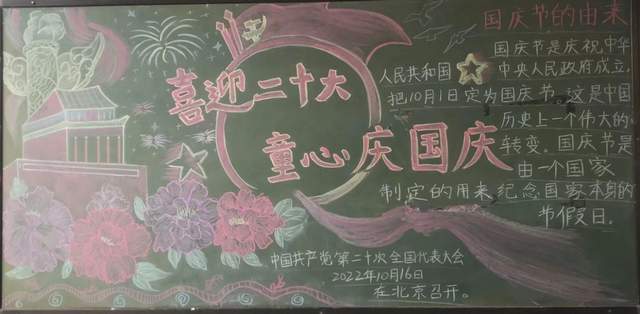 喜迎二十大
童心庆国庆
国庆节的由来
国庆节是庆祝,中华
人民共和国
中央人民政府成立,
把10月1日定为国庆节。这是中国
历史上一个伟大的
转变。国庆节是
由一个国家
制定的用来纪念国家本身的
节假日。
中国共产党第二十次全国代表大会
2022年10月16日
在北京召开。